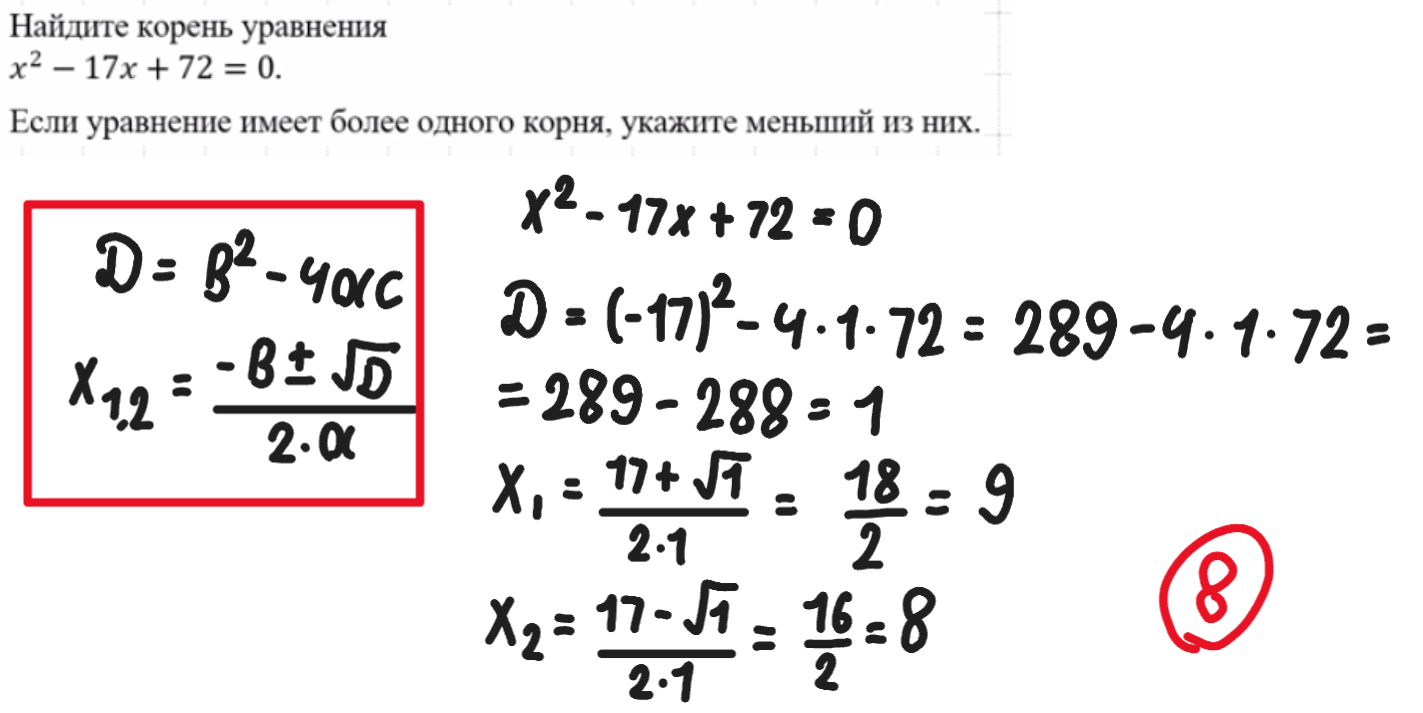 Найдите корень уравнения
x² − 17x + 72 = 0.
Если уравнение имеет более одного корня, укажите меньший из них.
D = B² - 4ac
x₁,₂ = (-B ± √D) / (2·a)
x² - 17x + 72 = 0
D = (-17)² - 4·1·72 = 289 - 4·1·72 =
= 289 - 288 = 1
x₁ = (17 + √1) / (2·1) = 18/2 = 9
x₂ = (17 - √1) / (2·1) = 16/2 = 8
8